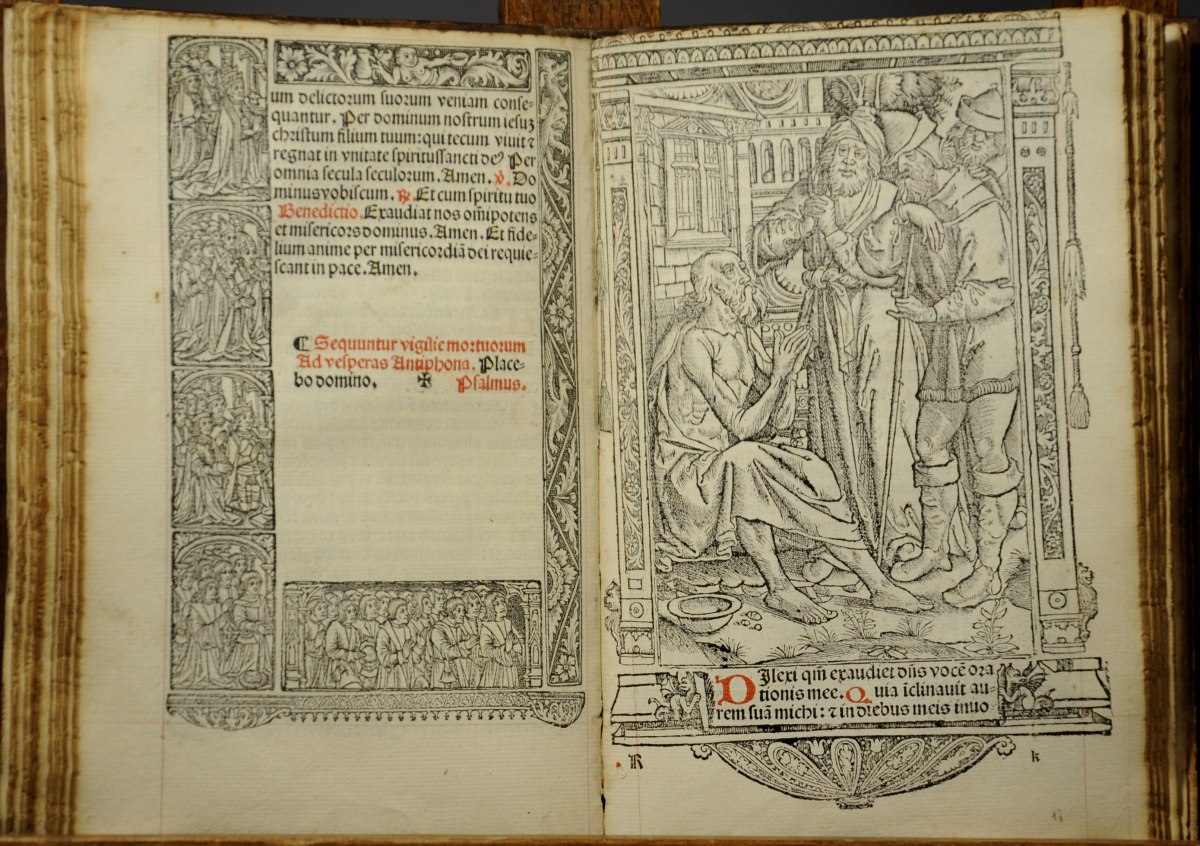 um delictorum suorum veniam conse-
quantur. Per dominum nostrum iesuȝ
christum filium tuum: qui tecum viuit ⁊
regnat in vnitate spiritussancti deꝰ Per
omnia secula seculorum. Amen. ℣. Do
minus vobiscum. ℟. Et cum spiritu tuo
Benedictio. Exaudiat nos om̄ipotens
et misericors dominus. Amen. Et fide-
lium anime per misericordiā dei requie-
scant in pace. Amen.
⸿ Sequuntur vigilie mortuorum
Ad vesperas Antiphona. Place-
bo domino. ✠ Psalmus.
DIlexi qm̄ exaudiet dn̄s vocē ora
tionis mee. Quia īclinauit au-
rem suā michi: ⁊ in diebus meis inuo
R k